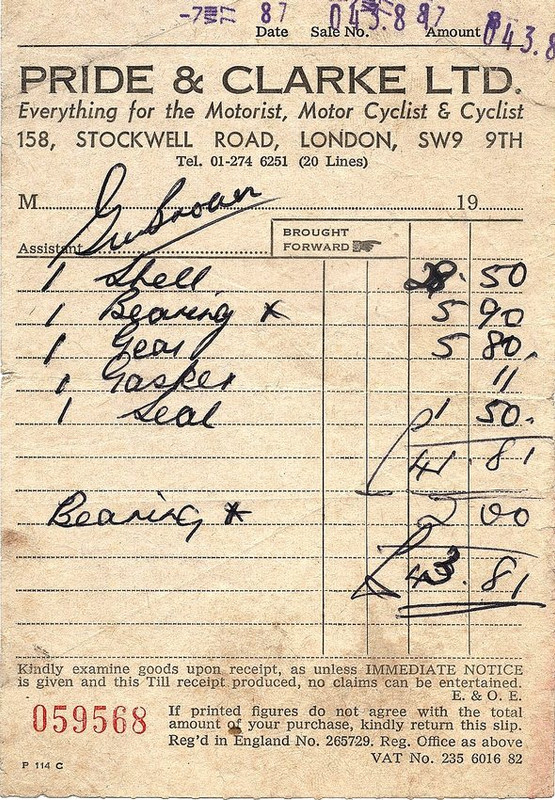 -7 VIII 87 043.8 87 043.8
Date Sale No. Amount
PRIDE & CLARKE LTD.
Everything for the Motorist, Motor Cyclist & Cyclist
158, STOCKWELL ROAD, LONDON, SW9 9TH
Tel. 01-274 6251 (20 Lines)
M 19
Assistant
BROUGHT
FORWARD
1 Shell 28.50
1 Bearing * 5 90
1 Gear 5 80
1 Gasket 11
1 Seal 1 50
£41.81
Bearing * 2 00
£43.81
Kindly examine goods upon receipt, as unless IMMEDIATE NOTICE
is given and this Till receipt produced, no claims can be entertained.
E. & O. E.
059568
If printed figures do not agree with the total
amount of your purchase, kindly return this slip.
Reg'd in England No. 265729. Reg. Office as above
P 114 C VAT No. 235 6016 82